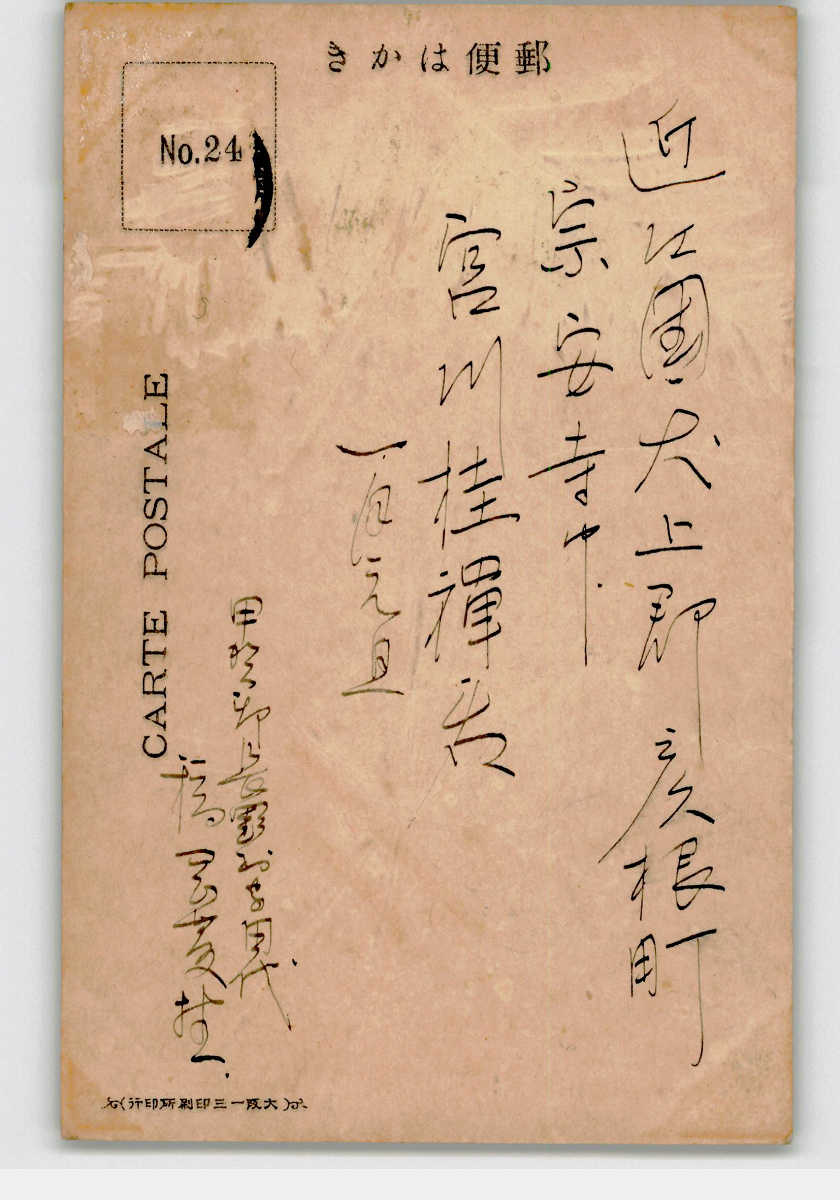 きかは便郵
No.24
CARTE POSTALE
近江國犬上郡彦根町
宗安寺中
宮川桂禅君
一月元旦
甲賀郡長野
大阪一三印刷所印行